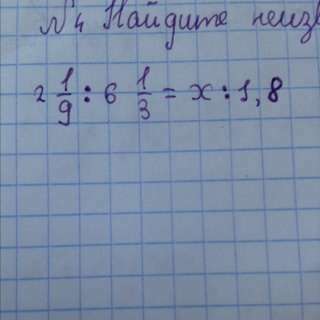 №4 Найдите
2 1/9 : 6 1/3 = x : 1,8